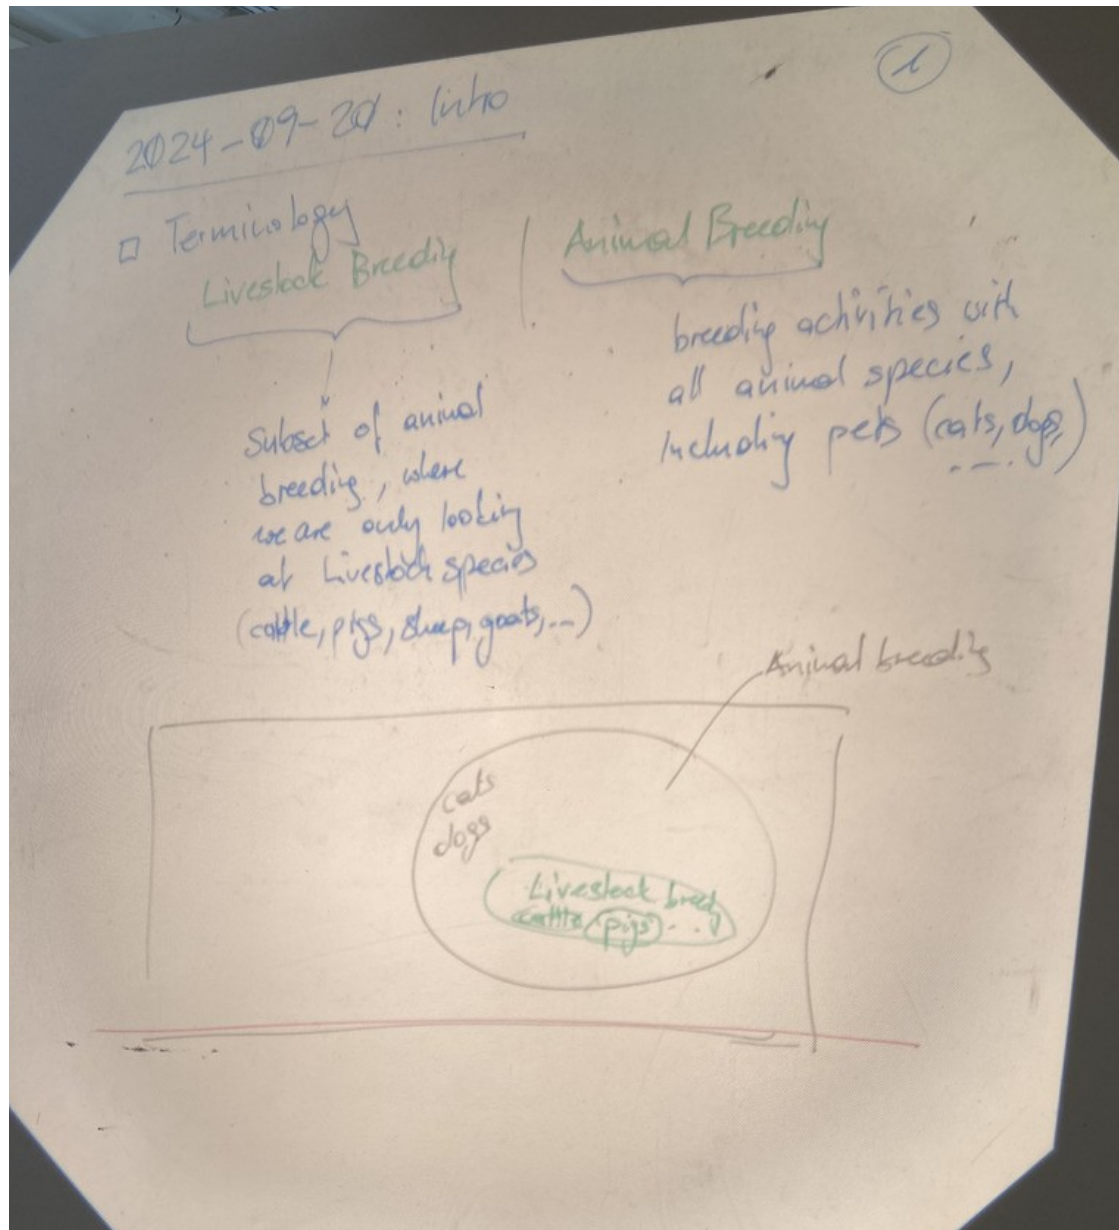 1
2024-09-20: Intro
Terminology
Livestock Breeding
Animal Breeding
Subset of animal
breeding, where
we are only looking
at Livestock species
(cattle, pigs, sheep, goats, ...)
breeding activities with
all animal species,
Including pets (cats, dogs,
....)
Animal breeding
cats
dogs
Livestock breedg
cattle pigs ...